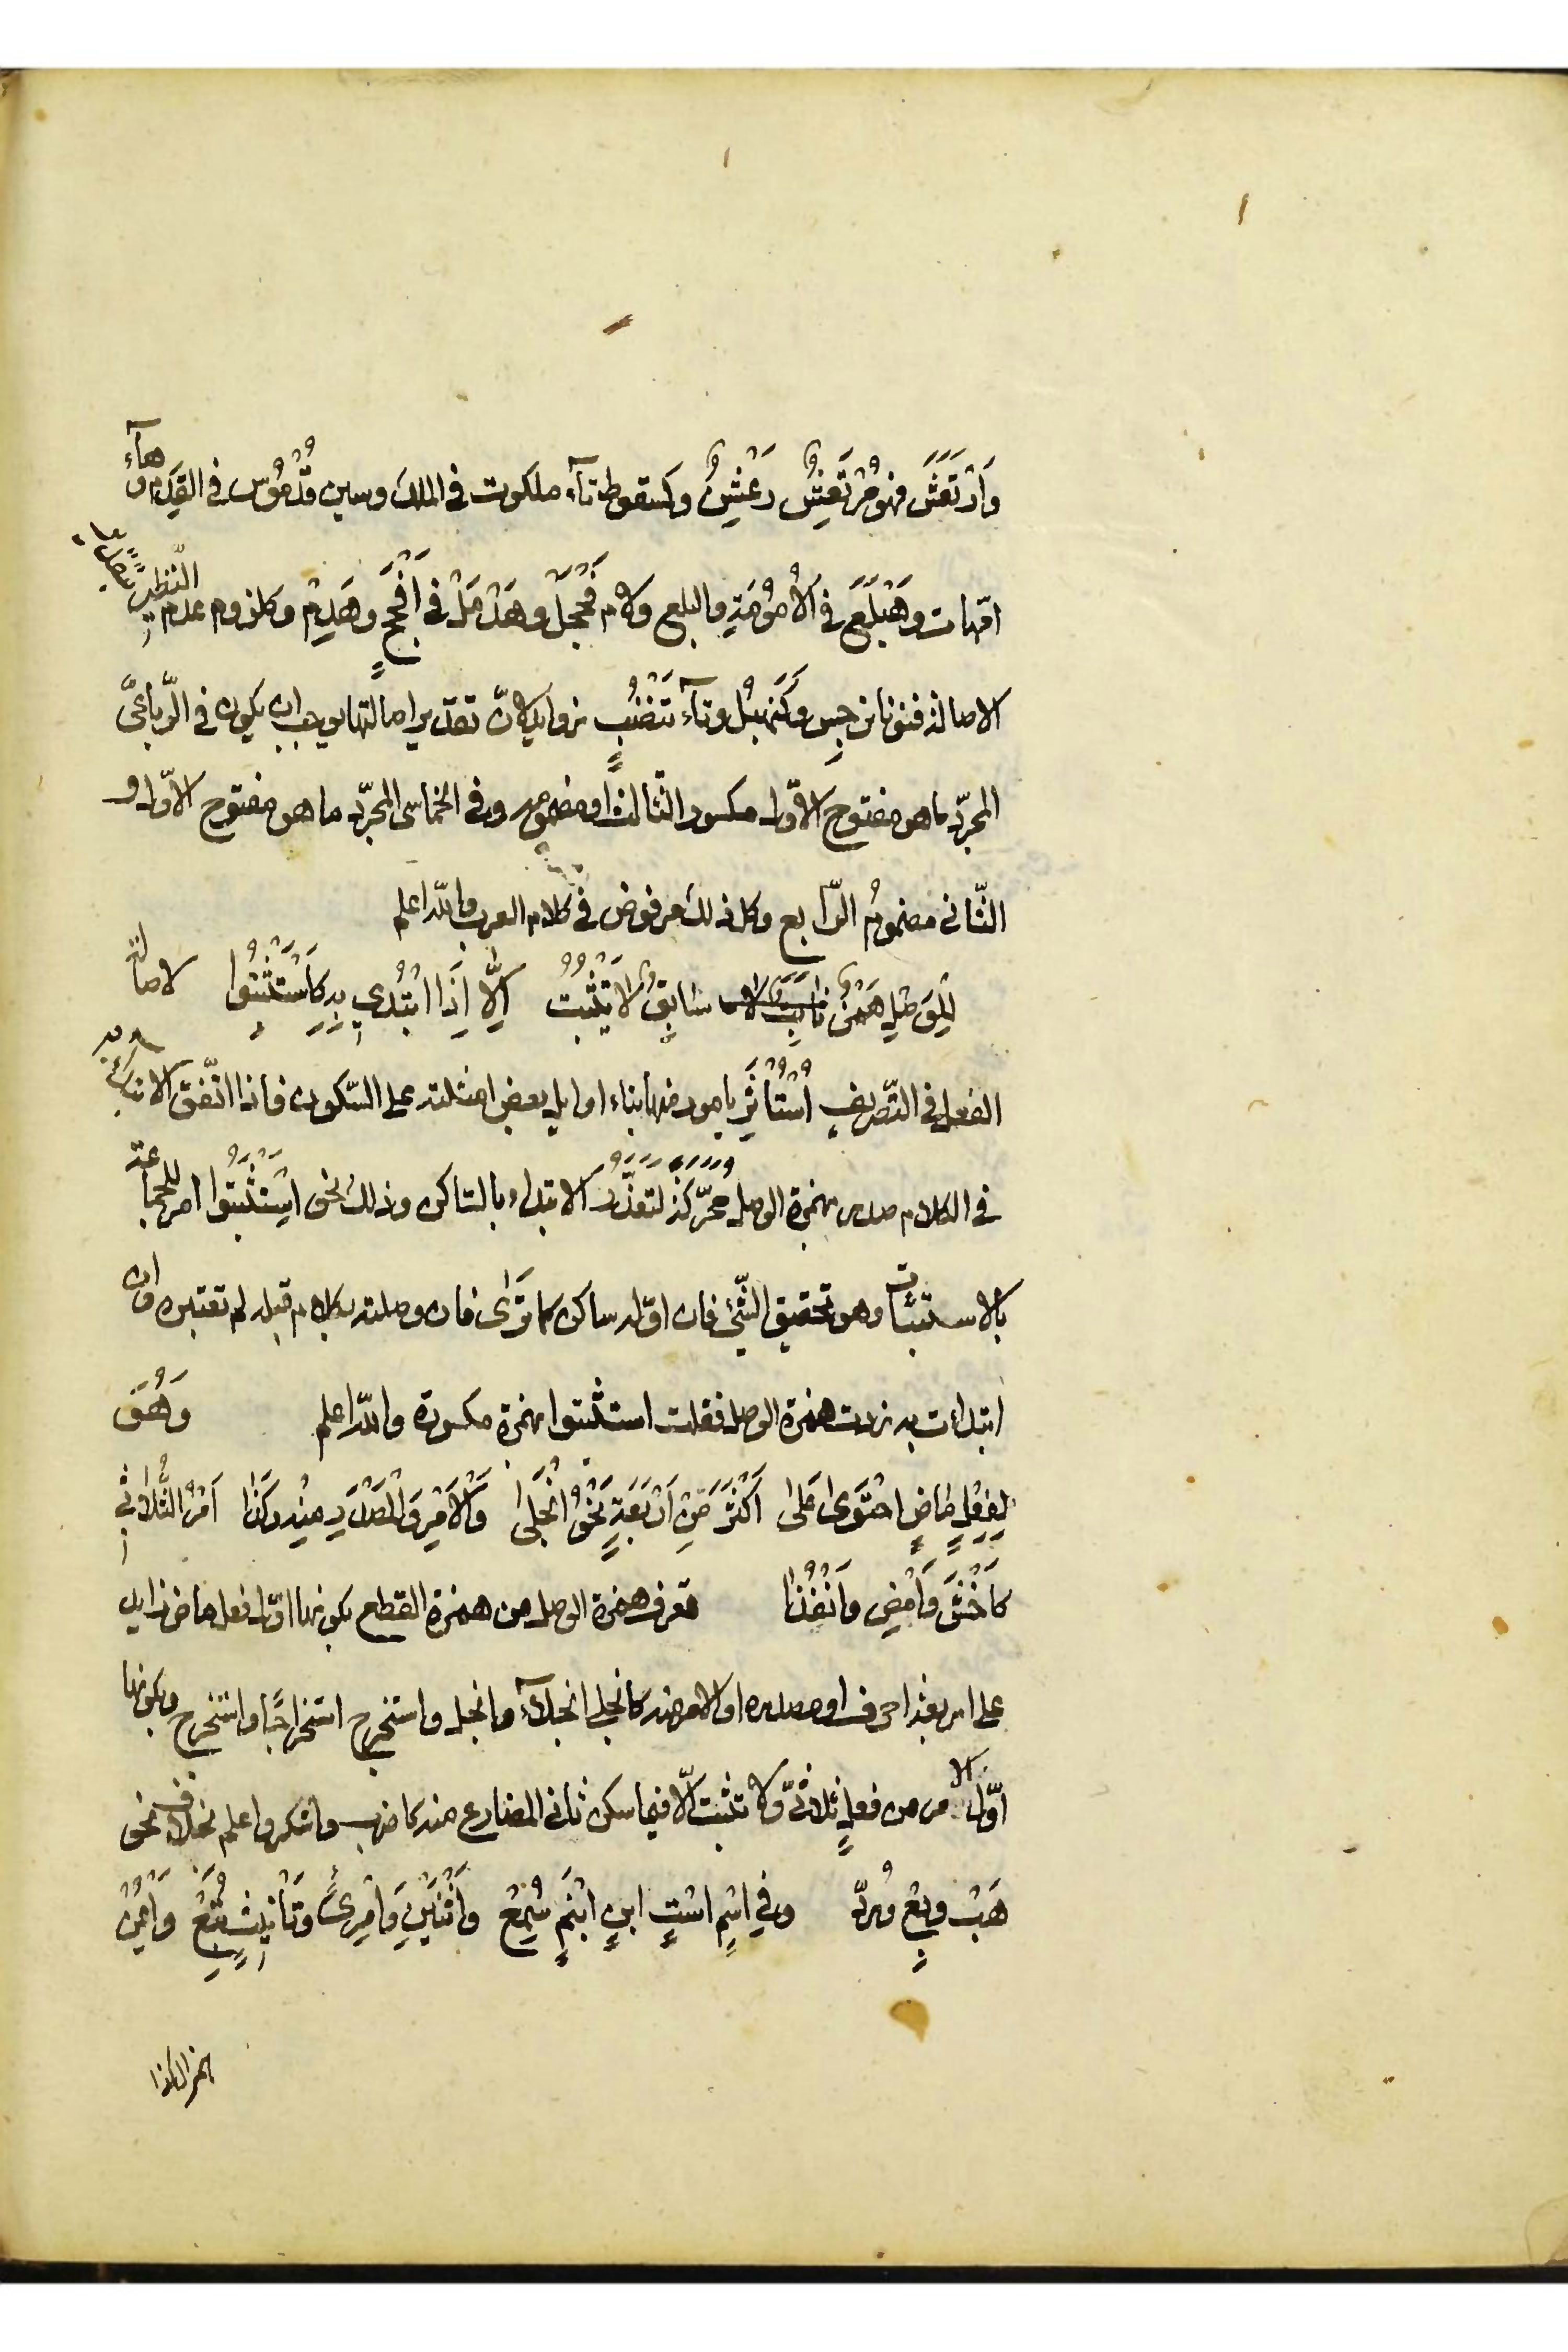 وَارْتَعَشَ فهو مُرْتَعِشٌ رَعْشِنٌ وكسقوط تآء ملكوت في الملك وسين قُدْمُوس في القِدَم وهآء
امّهات وهِبْلَعٍ في الأُمُوْمَةِ والبلع ولام فَحْجَلٍ وهَدْمَلٍ في أَفْحَجٍ وهَدِمٍ وكلزوم عدم النّظير بتقدير
الاصالة فنونا نرجِس وكَنَهبُل وتآء تَنْضُبٍ زوايد لانّ تقدير اصالتها يوجب ان يكون في الرّباعيّ
المجرّد ما هو مفتوح الاوّل مكسور الثالث او مضمومه وفي الخماسي المجرّد ما هو مفتوح الاوّل و
الثّاني مضمومُ الرّابع وكل ذلك مرفوض في كلام العرب والله اعلم
لِلْوَصْلِ هَمْزٌ سَابِقٌ لا يَثْبُتُ اِلَّا اِذَا ابْتُدِي بِهِ كَاسْتَثْبِتُوا لاصالة
الفعل في التّصريف اُسْتُأْثِرَ بامور منها بناء اوايل بعض امثلته على السّكون فاذا اتّفق الابتداء به
في الكلام صدر بهمزة الوصل محرّكة لتعذّر الابتداء بالسّاكن وذلك نحو اِسْتَثْبِتُوا امر للجماعة
بالاستثبات وهو تحقيق الشّيء فان اوّله ساكن كما تَرَى فان وصلته بكلام قبله لم تغيّره وان
ابتدات به زدت همزة الوصل فقلت استثبتوا بهمزة مكسورة والله اعلم وَهُوَ
لِفِعْلٍ مَاضٍ احْتَوَى عَلَى أَكْثَرَ مِنْ أَرْبَعَةٍ نَحْوُ انْجَلَى وَالأَمْرِ وَالمَصْدَرِ مِنْهُ وَكَذَا أَمْرُ الثُّلَاثِي
كَاخْشَ وَامْضِ وَانْفُذَا تعرف همزة الوصل من همزة القطع بكونها اوّل فعل ماض زايد
على اربعة احرف او مصدره او الامر منه كانجلى انجلآء وانجل واستخرج استخراجًا واستخرج وبكونها
اوّل الامر من فعلٍ ثلاثيّ ولا تثبت الّا فيما سكن ثاني المضارع منه كاضرب واشكر واعلم بخلاف نحو
هَبْ وبِعْ ورُدّ وفي اسْمٍ اسْتٍ ابنٍ ابْنَمٍ سُمِعْ وَاثْنَيْنِ وَامْرِئٍ وَتَأْنِيثٍ تَبِعْ وَايْمُنُ
همزال كذا